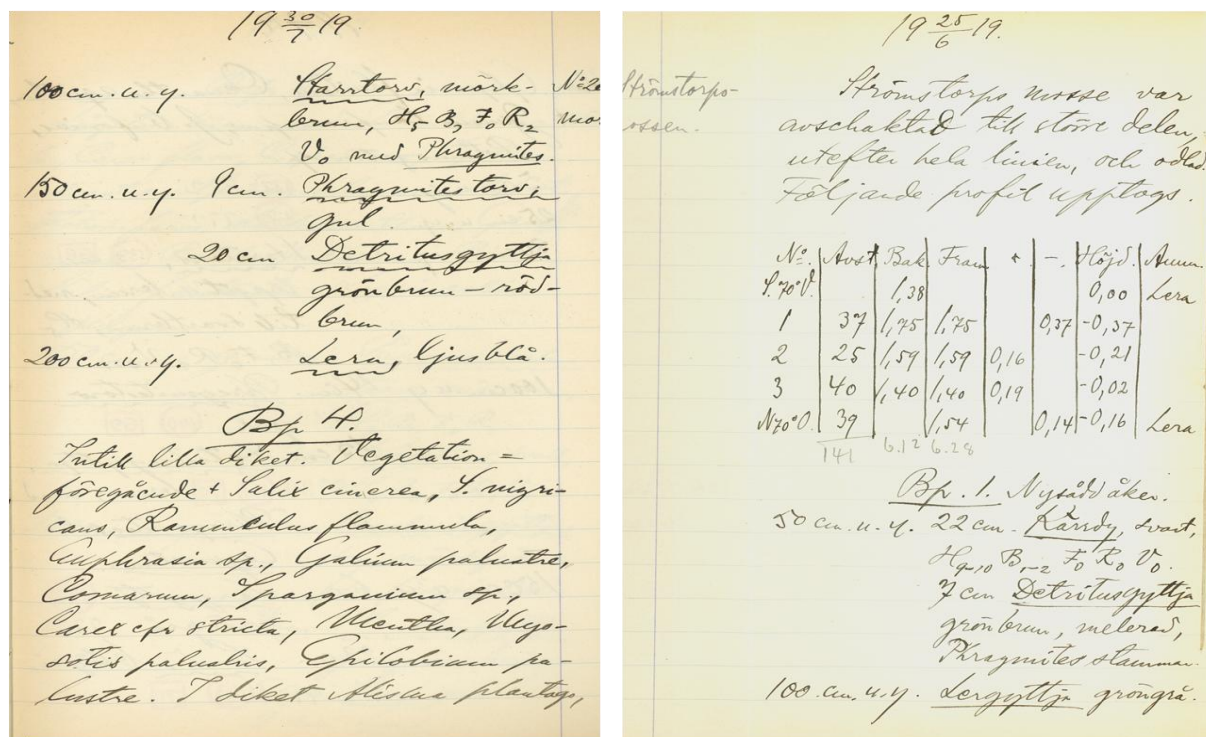 19 30/7 19.
100 cm. u. y. Starrtorv, mörk-
brun, H5 B3 F0 R2
V0 med Phragmites.
150 cm. u. y. 9 cm. Phragmitestorv,
gul.
20 cm Detritusgyttja
grönbrun – röd-
brun,
200 cm. u. y. Lera, ljusblå.
Bp 4.
Intill lilla diket. Vegetation =
föregående + Salix cinerea, S. nigri-
cans, Ranunkulus flammula,
Euphrasia sp., Galium palustre,
Comarum, Sparganium sp.,
Carex cfr stricta, Mentha, Myo-
sotis palustris, Epilobium pa-
lustre. I diket Alisma plantago,
19 25/6 19.
Strömstorps-
ossen.
Strömstorps mosse var
avschaktad till större delen,
utefter hela linien, och odlad.
Följande profil upptogs.
No. Avst. Bak Fram + –. Höjd. Anm.
S. 70° V. 1,38 0,00 Lera
1 37 1,75 1,75 0,37 -0,37
2 25 1,59 1,59 0,16 -0,21
3 40 1,40 1,40 0,19 -0,02
N 70° O. 39 1,54 0,14 -0,16 Lera
141 6.12 6.28
Bp. 1. Nysådd åker.
50 cm. u. y. 22 cm. Kärrdy, svart,
H9-10 B1-2 F0 R0 V0.
7 cm Detritusgyttja
grönbrun, melerad,
Phragmites stammar.
100. cm. u. y. Lergyttja gröngrå.